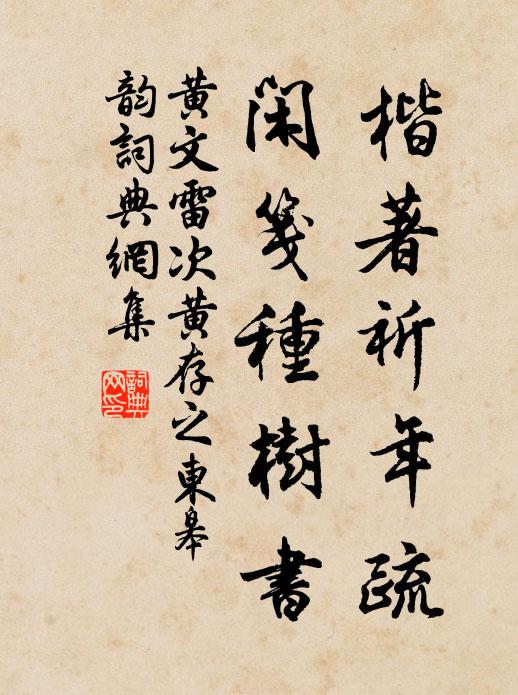 楷著祈年疏
閑箋種樹書
黄文雷次黄存之東皋
韵詞典網集
詞典
网印